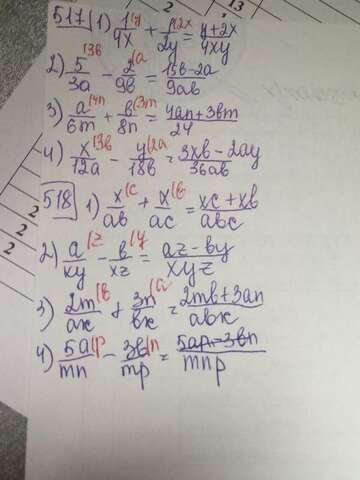 2
13
517 1) 1|y/4x + 1|2x/2y = y+2x/4xy
2) 5|3b/3a - 2|a/9b = 15b-2a/9ab
3) a|4n/6m + b|3m/8n = 4an+3bm/24
4) x|3b/12a - y|2a/18b = 3xb-2ay/36ab
518 1) x|c/ab + x|b/ac = xc+xb/abc
2) a|z/xy - b|y/xz = az-by/xyz
3) 2m|b/ak + 3n|a/bk = 2mb+3an/abk
4) 5a|p/mn - 3b|n/mp = 5ap-3bn/mnp
2
2
2
2